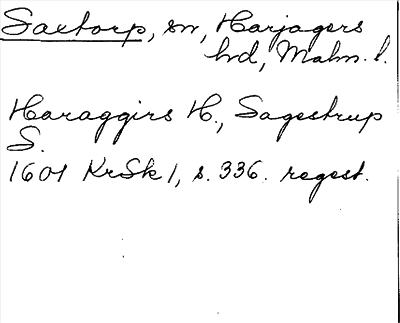 Saxtorp, sn, Harjagers
hd, Malm. l.
Haraggirs H., Sagestrup
S.
1601 KrSk 1, s. 336. regest.